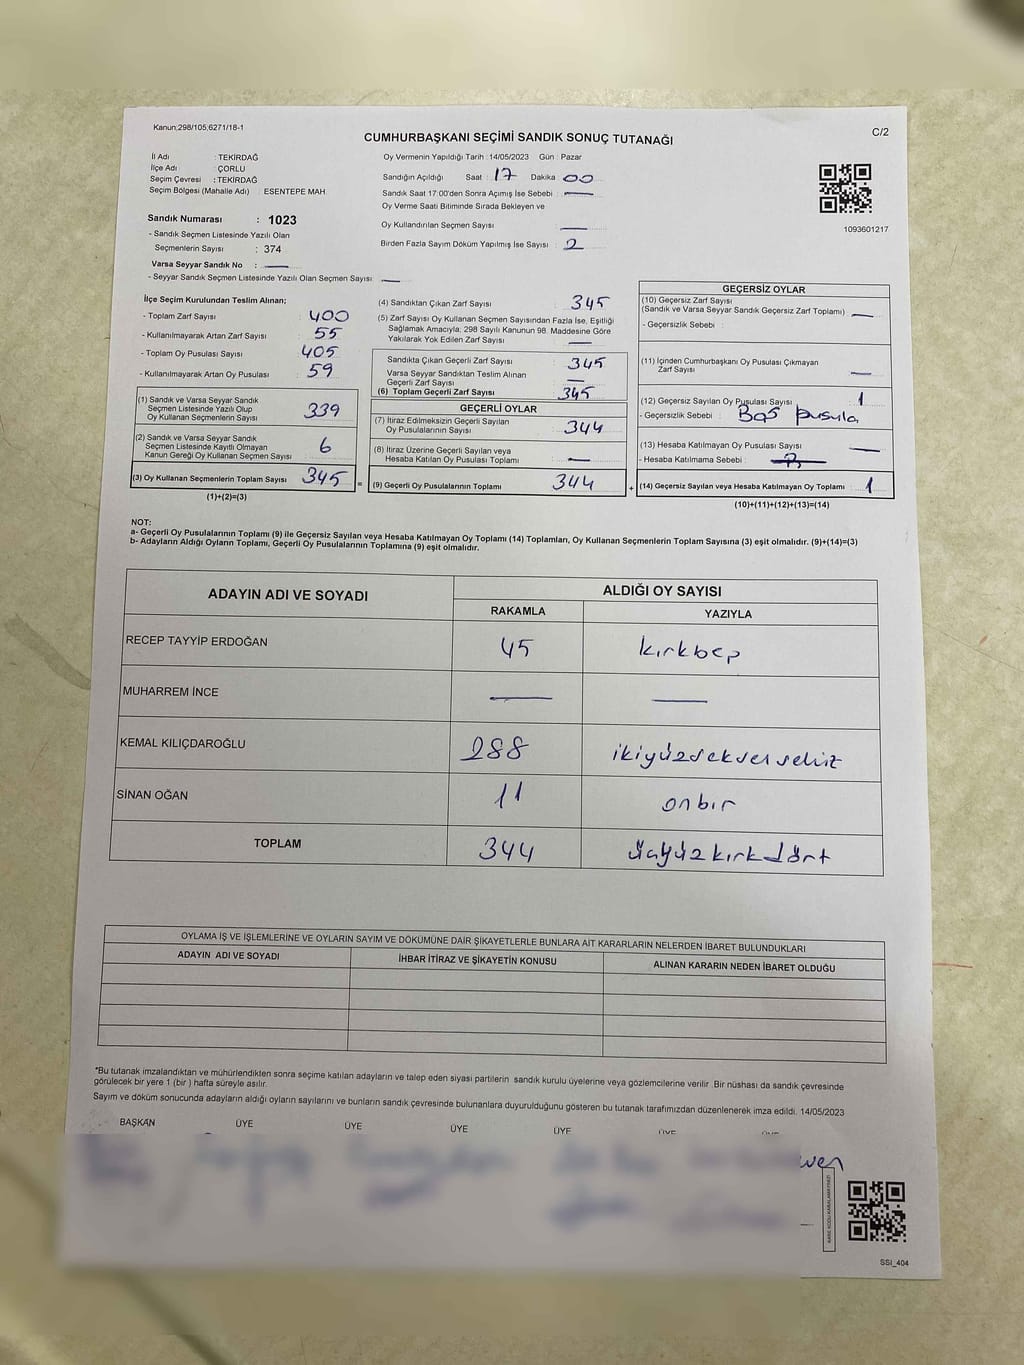 Kanun;298/105;6271/18-1
C/2
CUMHURBAŞKANI SEÇİMİ SANDIK SONUÇ TUTANAĞI
İl Adı : TEKİRDAĞ
İlçe Adı : ÇORLU
Seçim Çevresi : TEKİRDAĞ
Seçim Bölgesi (Mahalle Adı) : ESENTEPE MAH
Sandık Numarası : 1023
- Sandık Seçmen Listesinde Yazılı Olan
Seçmenlerin Sayısı : 374
Varsa Seyyar Sandık No : —
- Seyyar Sandık Seçmen Listesinde Yazılı Olan Seçmen Sayısı: —
Oy Vermenin Yapıldığı Tarih :14/05/2023 Gün : Pazar
Sandığın Açıldığı Saat : 17 Dakika : 00
Sandık Saat 17:00'den Sonra Açımış İse Sebebi : —
Oy Verme Saati Bitiminde Sırada Bekleyen ve
Oy Kullandırılan Seçmen Sayısı : —
Birden Fazla Sayım Döküm Yapılmış İse Sayısı : 2
1093601217
İlçe Seçim Kurulundan Teslim Alınan;
- Toplam Zarf Sayısı : 400
- Kullanılmayarak Artan Zarf Sayısı : 55
- Toplam Oy Pusulası Sayısı : 405
- Kullanılmayarak Artan Oy Pusulası : 59
(1) Sandık ve Varsa Seyyar Sandık
Seçmen Listesinde Yazılı Olup
Oy Kullanan Seçmenlerin Sayısı : 339
(2) Sandık ve Varsa Seyyar Sandık
Seçmen Listesinde Kayıtlı Olmayan
Kanun Gereği Oy Kullanan Seçmen Sayısı : 6
(3) Oy Kullanan Seçmenlerin Toplam Sayısı : 345 =
(1)+(2)=(3)
(4) Sandıktan Çıkan Zarf Sayısı : 345
(5) Zarf Sayısı Oy Kullanan Seçmen Sayısından Fazla İse, Eşitliği
Sağlamak Amacıyla; 298 Sayılı Kanunun 98. Maddesine Göre
Yakılarak Yok Edilen Zarf Sayısı : —
Sandıkta Çıkan Geçerli Zarf Sayısı : 345
Varsa Seyyar Sandıktan Teslim Alınan
Geçerli Zarf Sayısı : —
(6) Toplam Geçerli Zarf Sayısı : 345
GEÇERLİ OYLAR
(7) İtiraz Edilmeksizin Geçerli Sayılan
Oy Pusulalarının Sayısı : 344
(8) İtiraz Üzerine Geçerli Sayılan veya
Hesaba Katılan Oy Pusulası Toplamı : —
(9) Geçerli Oy Pusulalarının Toplamı : 344 +
GEÇERSİZ OYLAR
(10) Geçersiz Zarf Sayısı
(Sandık ve Varsa Seyyar Sandık Geçersiz Zarf Toplamı) : —
- Geçersizlik Sebebi :
(11) İçinden Cumhurbaşkanı Oy Pusulası Çıkmayan
Zarf Sayısı : —
(12) Geçersiz Sayılan Oy Pusulası Sayısı : 1
- Geçersizlik Sebebi : Boş pusula
(13) Hesaba Katılmayan Oy Pusulası Sayısı : —
- Hesaba Katılmama Sebebi :
(14) Geçersiz Sayılan veya Hesaba Katılmayan Oy Toplamı : 1
(10)+(11)+(12)+(13)=(14)
NOT:
a- Geçerli Oy Pusulalarının Toplamı (9) ile Geçersiz Sayılan veya Hesaba Katılmayan Oy Toplamı (14) Toplamları, Oy Kullanan Seçmenlerin Toplam Sayısına (3) eşit olmalıdır. (9)+(14)=(3)
b- Adayların Aldığı Oyların Toplamı, Geçerli Oy Pusulalarının Toplamına (9) eşit olmalıdır.
ADAYIN ADI VE SOYADI
ALDIĞI OY SAYISI
RAKAMLA YAZIYLA
RECEP TAYYİP ERDOĞAN 45 kırkbeş
MUHARREM İNCE — —
KEMAL KILIÇDAROĞLU 288 ikiyüzseksensekiz
SİNAN OĞAN 11 onbir
TOPLAM 344 üçyüzkırkdört
OYLAMA İŞ VE İŞLEMLERİNE VE OYLARIN SAYIM VE DÖKÜMÜNE DAİR ŞİKAYETLERLE BUNLARA AİT KARARLARIN NELERDEN İBARET BULUNDUKLARI
ADAYIN ADI VE SOYADI İHBAR İTİRAZ VE ŞİKAYETİN KONUSU ALINAN KARARIN NEDEN İBARET OLDUĞU
*Bu tutanak imzalandıktan ve mühürlendikten sonra seçime katılan adayların ve talep eden siyasi partilerin sandık kurulu üyelerine veya gözlemcilerine verilir. Bir nüshası da sandık çevresinde
görülecek bir yere 1 (bir ) hafta süreyle asılır.
Sayım ve döküm sonucunda adayların aldığı oyların sayılarını ve bunların sandık çevresinde bulunanlara duyurulduğunu gösteren bu tutanak tarafımızdan düzenlenerek imza edildi. 14/05/2023
BAŞKAN ÜYE ÜYE ÜYE ÜYE ÜYE
SSI_404